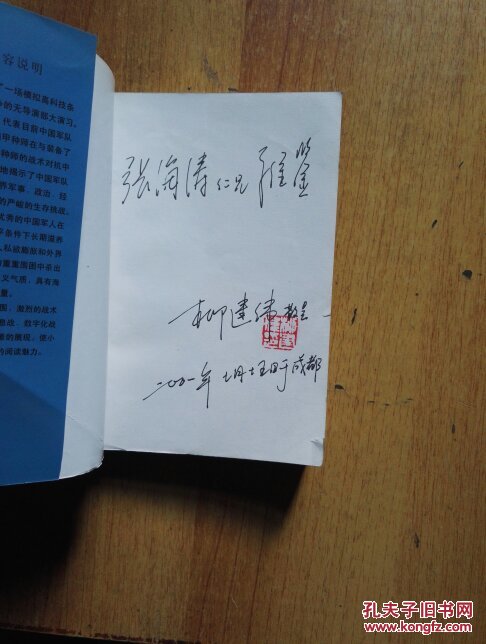 容说明
了一场模拟高科技条
的无导演部大演习。
代表目前中国军队
甲种师在与装备了
种师的战术对抗中
地揭示了中国军队
界军事、政治、经
的严峻的生存挑战。
优秀的中国军人在
平条件下长期滋养
私欲膨胀和外界
重重围困中杀出
义气质，具有海
量。
围，激烈的战术
息战、数字化战
的展现，使小
的阅读魅力。
张海涛仁兄雅鉴
柳建伟敬呈
二〇〇一年七月十五日于成都
孔夫子旧书网
www.kongfz.com